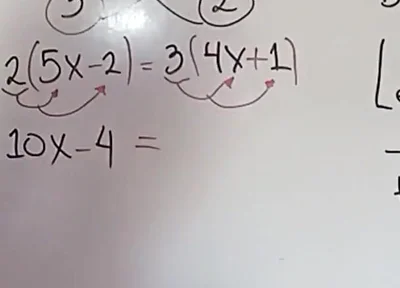 2
2(5x-2)=3(4x+1)
10x-4=